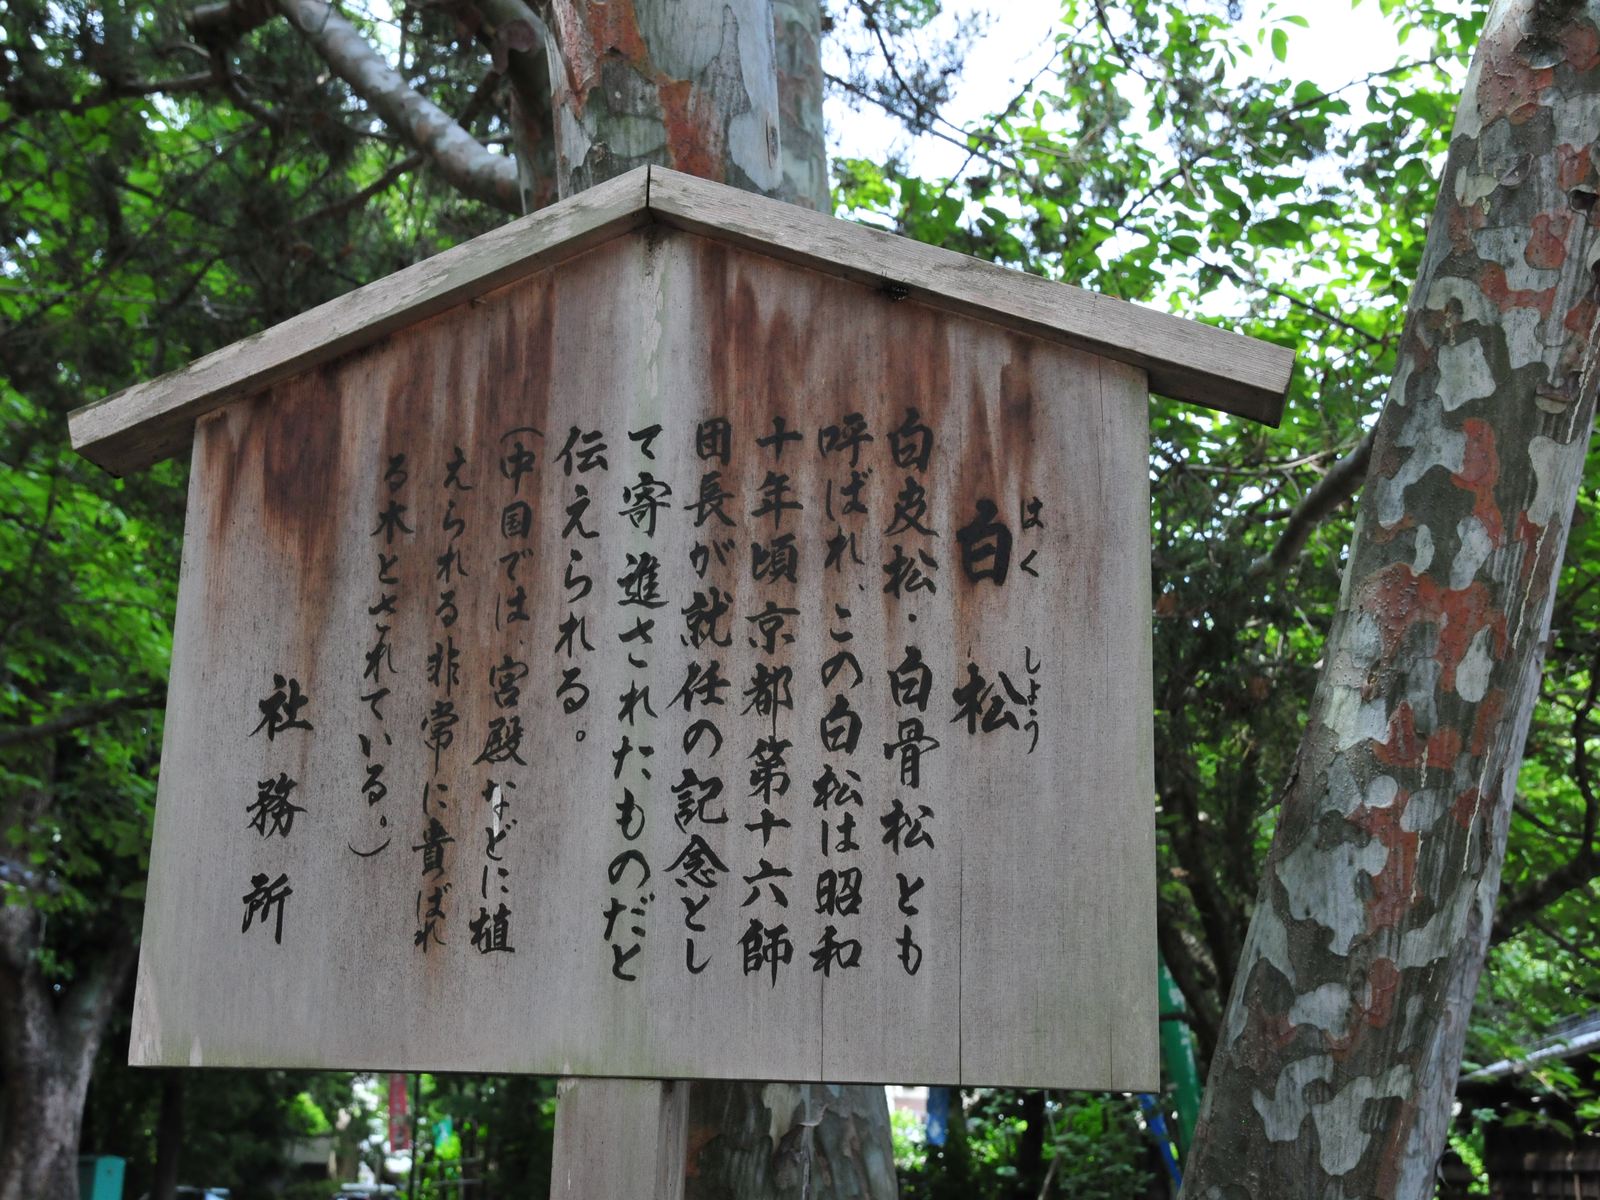 はくしょう
白松
白皮松・白骨松とも
呼ばれ、この白松は昭和
十年頃京都第十六師
団長が就任の記念とし
て寄進されたものだと
伝えられる。
(中国では、宮殿などに植
えられる非常に貴ばれ
る木とされている。)
社務所